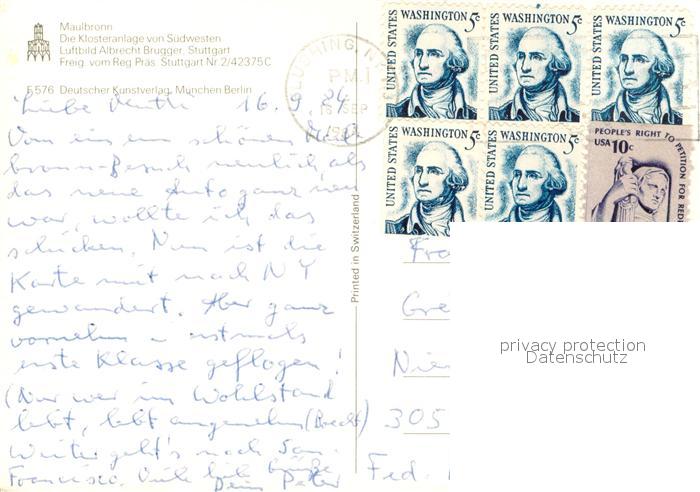 Maulbronn
Die Klosteranlage von Südwesten
Luftbild Albrecht Brugger, Stuttgart
Freig. vom Reg Präs. Stuttgart Nr. 2/42375C
F 576 Deutscher Kunstverlag, München Berlin
Liebe 16. 9. 84
Von einem schönen Maul-
bronn-Besuch neulich, als
das neue Auto ganz neu
war, wollte ich das
schicken. Nun ist die
Karte mit nach NY
gewandert. Aber ganz
vornehm u erstmals
erste Klasse geflogen!
(Nur wer im Wohlstand
lebt, lebt angenehm (Brecht)
Weiter geht's nach San
Francisco. Viele liebe Grüße
Dein Peter
Printed in Switzerland
FLUSHING, NY
PM
SEP
UNITED STATES WASHINGTON 5c
UNITED STATES WASHINGTON 5c
UNITED STATES WASHINGTON 5c
UNITED STATES WASHINGTON 5c
UNITED STATES WASHINGTON 5c
PEOPLE'S RIGHT TO PETITION FOR REDR
USA 10c
Fra
Gre
Nien
305
Fed.
privacy protection
Datenschutz